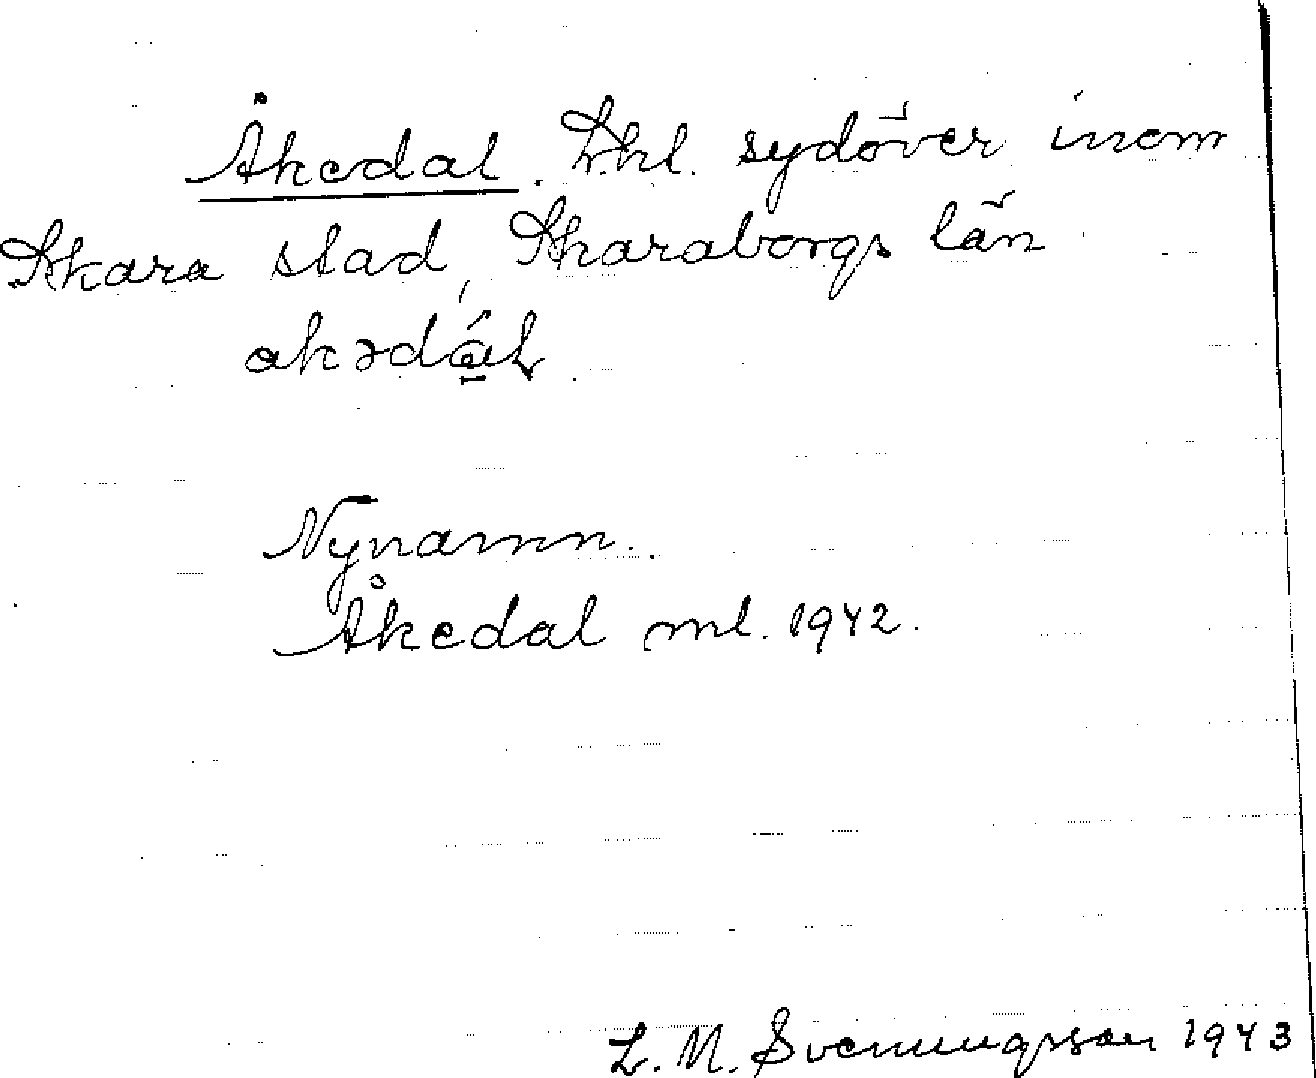 Åkedal. Lhl. sydöver inom
Skara stad, Skaraborgs län
akədál
Nynamn.
Åkedal ml. 1942.
L. M. Svenungsson 1943